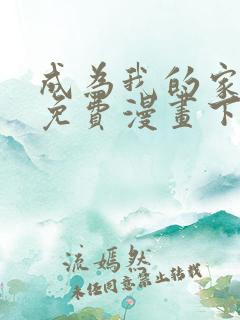 成為我的家
免費漫畫下
流嫣然
未经同意禁止转载